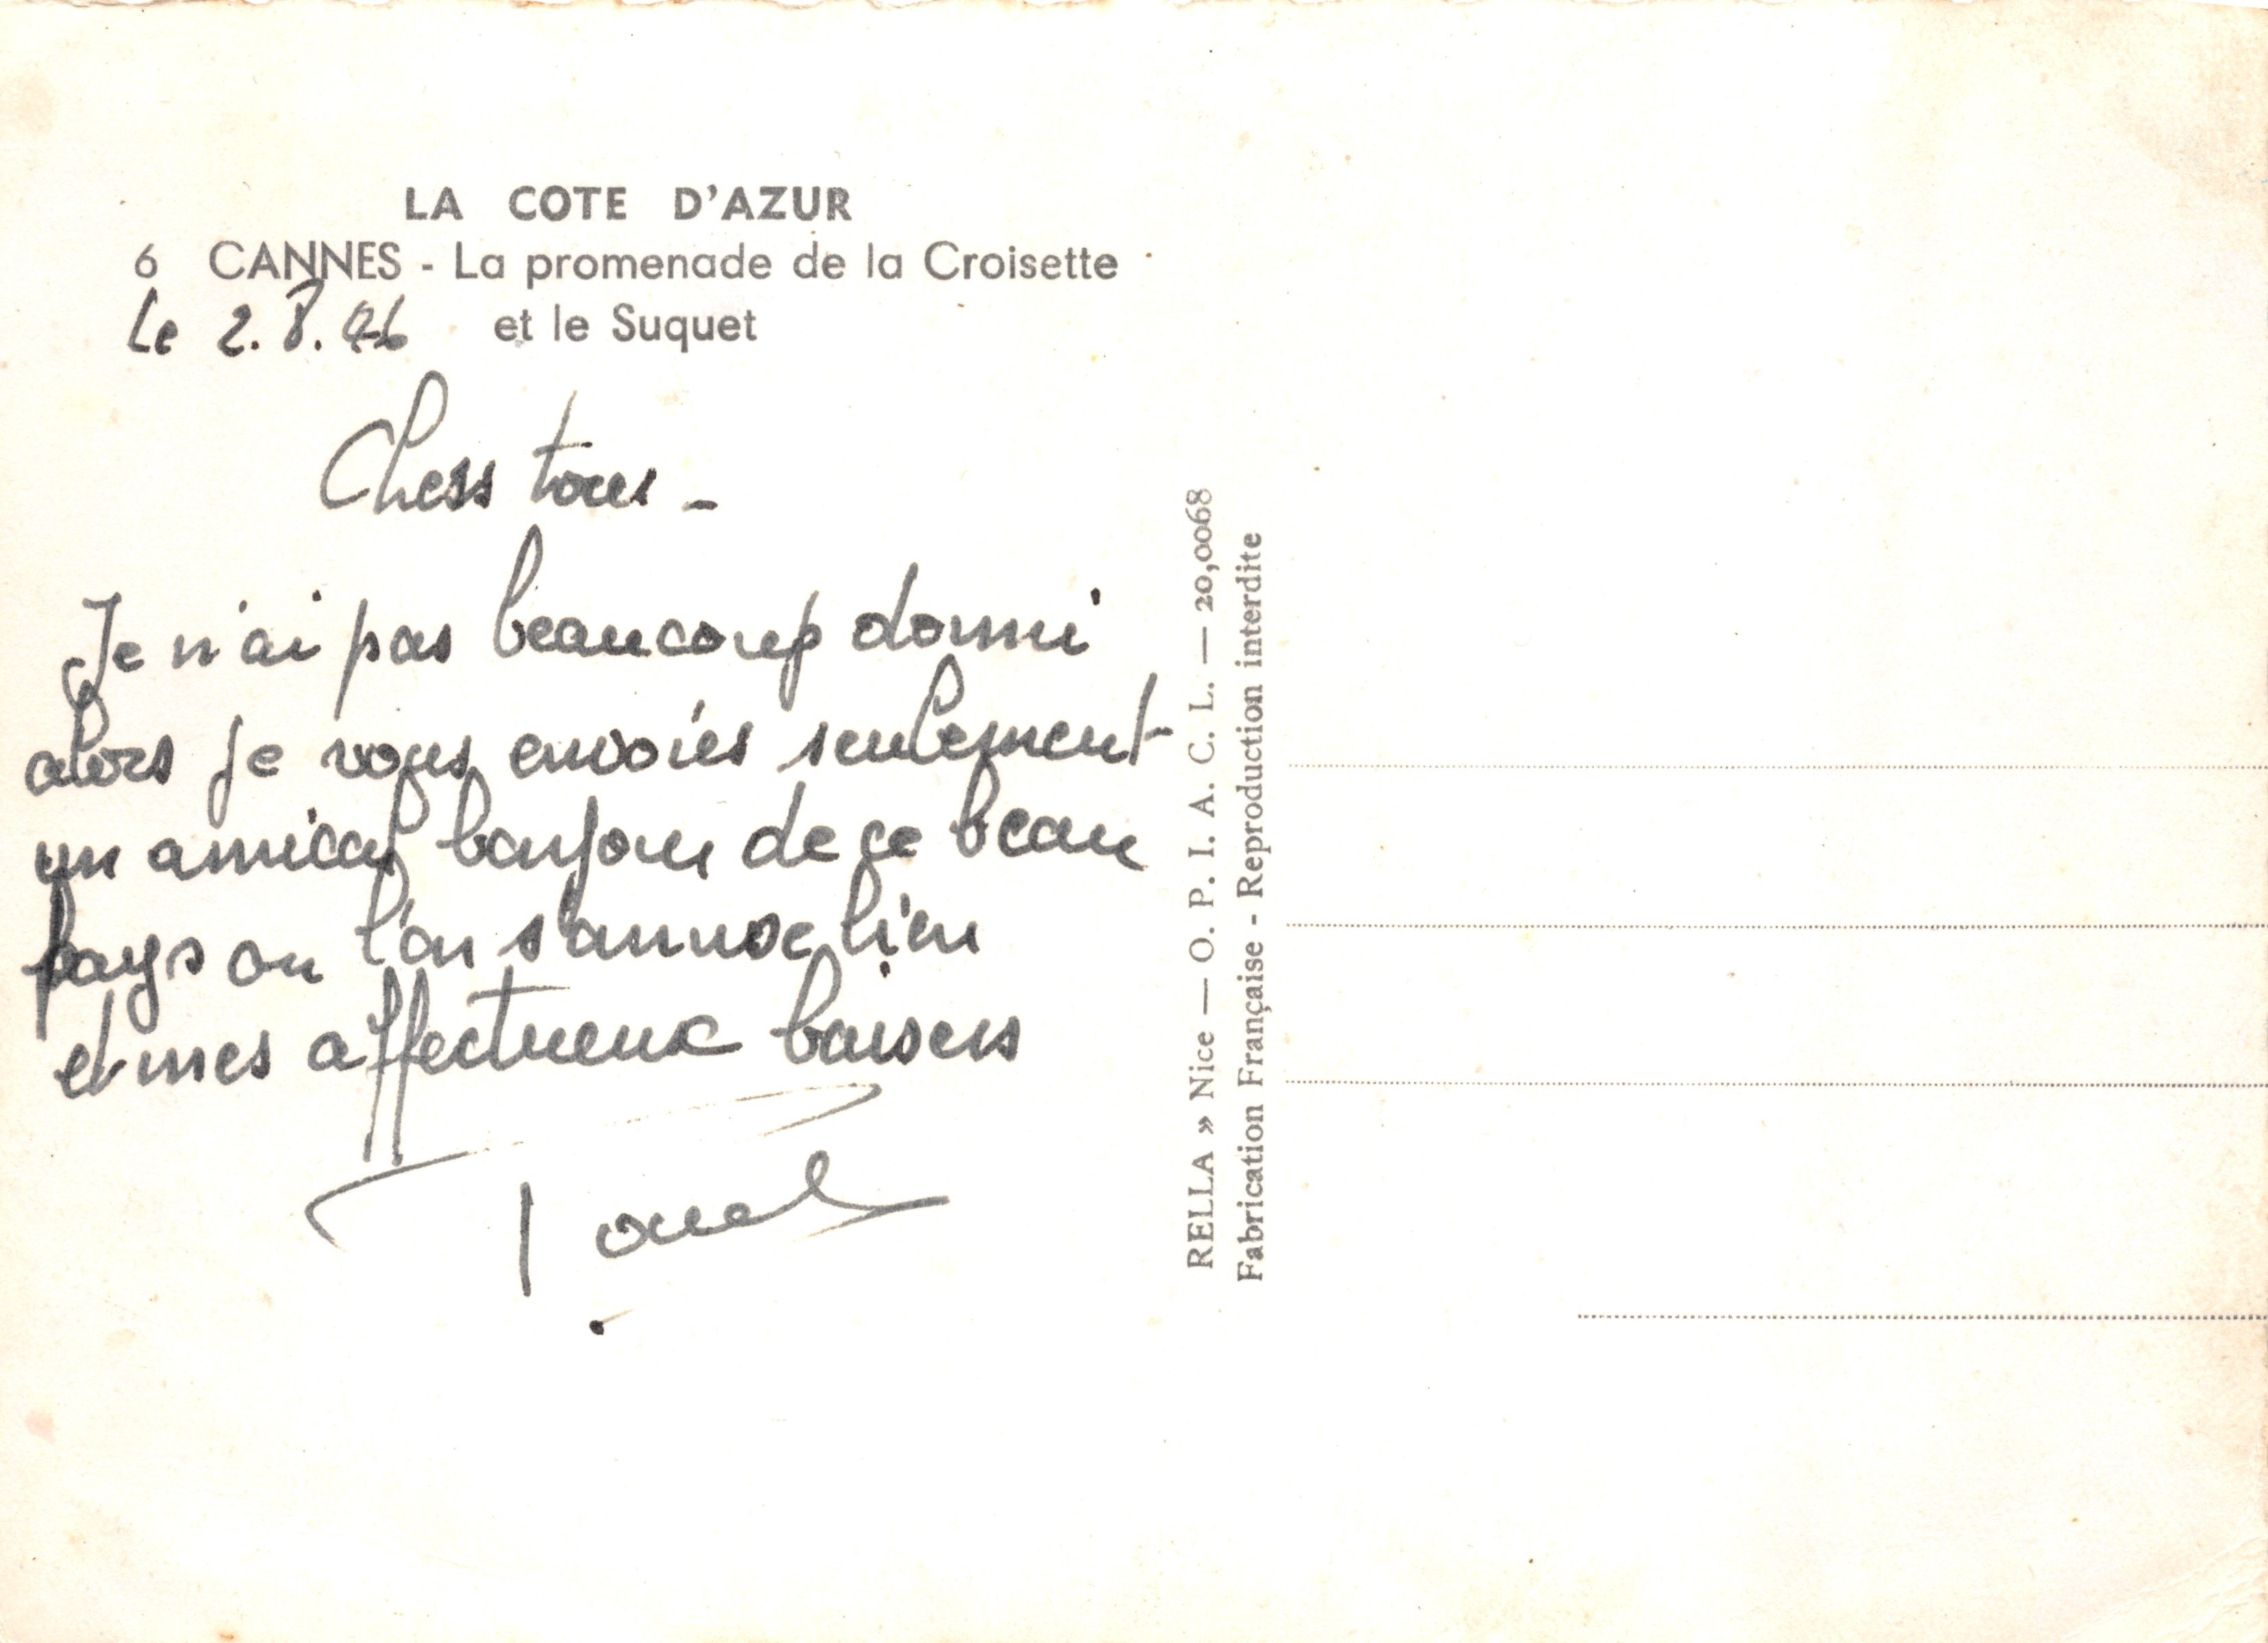 LA COTE D'AZUR
6 CANNES - La promenade de la Croisette
et le Suquet
Le 2.8.
Chers tous -
Je n'ai pas beaucoup dormi
alors je vous envoies seulement
un amical bonjour de ce beau
pays ou l'on s'amuse bien
et mes affectueux baisers
RELLA » Nice — O. P. I. A. C. L. — 20,0068
Fabrication Française - Reproduction interdite